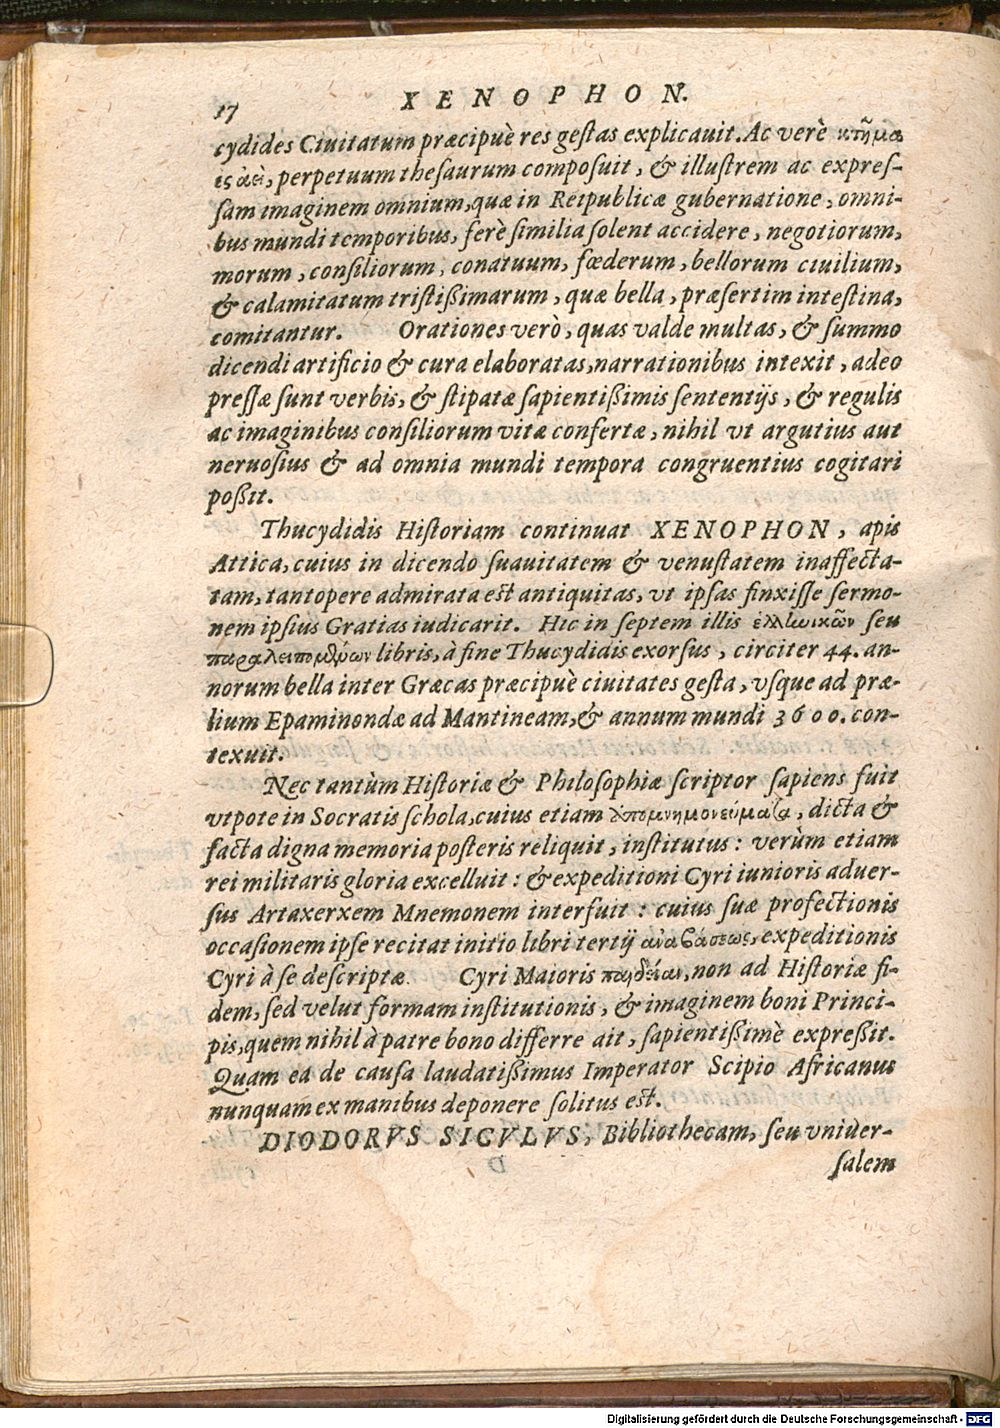 17 XENOPHON.
cydides Ciuitatum præcipuè res geſtas explicauit. Ac verè κτῆμα
ες ἀεὶ, perpetuum theſaurum compoſuit, & illuſtrem ac expreſ-
ſam imaginem omnium, quæ in Reipublicæ gubernatione, omni-
bus mundi temporibus, ferè ſimilia ſolent accidere, negotiorum,
morum, conſiliorum, conatuum, fœderum, bellorum ciuilium,
& calamitatum triſtißimarum, quæ bella, præſertim inteſtina,
comitantur. Orationes verò, quas valde multas, & ſummo
dicendi artificio & cura elaboratas, narrationibus intexit, adeo
preſſæ ſunt verbis, & ſtipatæ ſapientißimis ſententijs, & regulis
ac imaginibus conſiliorum vitæ confertæ, nihil vt argutius aut
neruoſius & ad omnia mundi tempora congruentius cogitari
poßit.
Thucydidis Hiſtoriam continuat XENOPHON, apis
Attica, cuius in dicendo ſuauitatem & venuſtatem inaffecta-
tam, tantopere admirata est antiquitas, vt ipſas finxiſſe ſermo-
nem ipſius Gratias iudicarit. Hic in ſeptem illis ἑλληνικῶν ſeu
παραλειπομένων libris, à fine Thucydidis exorſus, circiter 44. an-
norum bella inter Græcas præcipuè ciuitates geſta, vſque ad præ-
lium Epaminondæ ad Mantineam, & annum mundi 3600. con-
texuit.
Nec tantùm Hiſtoriæ & Philoſophiæ ſcriptor ſapiens fuit
vtpote in Socratis ſchola, cuius etiam ἀπομνημονεύματα, dicta &
facta digna memoria poſteris reliquit, inſtitutus: verùm etiam
rei militaris gloria excelluit: & expeditioni Cyri iunioris aduer-
ſus Artaxerxem Mnemonem interfuit: cuius ſuæ profectionis
occaſionem ipſe recitat initio libri tertij ἀναβάσεως, expeditionis
Cyri à ſe deſcriptæ. Cyri Maioris παιδείαν, non ad Hiſtoriæ fi-
dem, ſed velut formam inſtitutionis, & imaginem boni Princi-
pis, quem nihil à patre bono differre ait, ſapientißimè expreßit.
Quam ea de cauſa laudatißimus Imperator Scipio Africanus
nunquam ex manibus deponere ſolitus est.
DIODORVS SICVLVS, Bibliothecam, ſeu vniuer-
ſalem
Digitalisierung gefördert durch die Deutsche Forschungsgemeinschaft - DFG